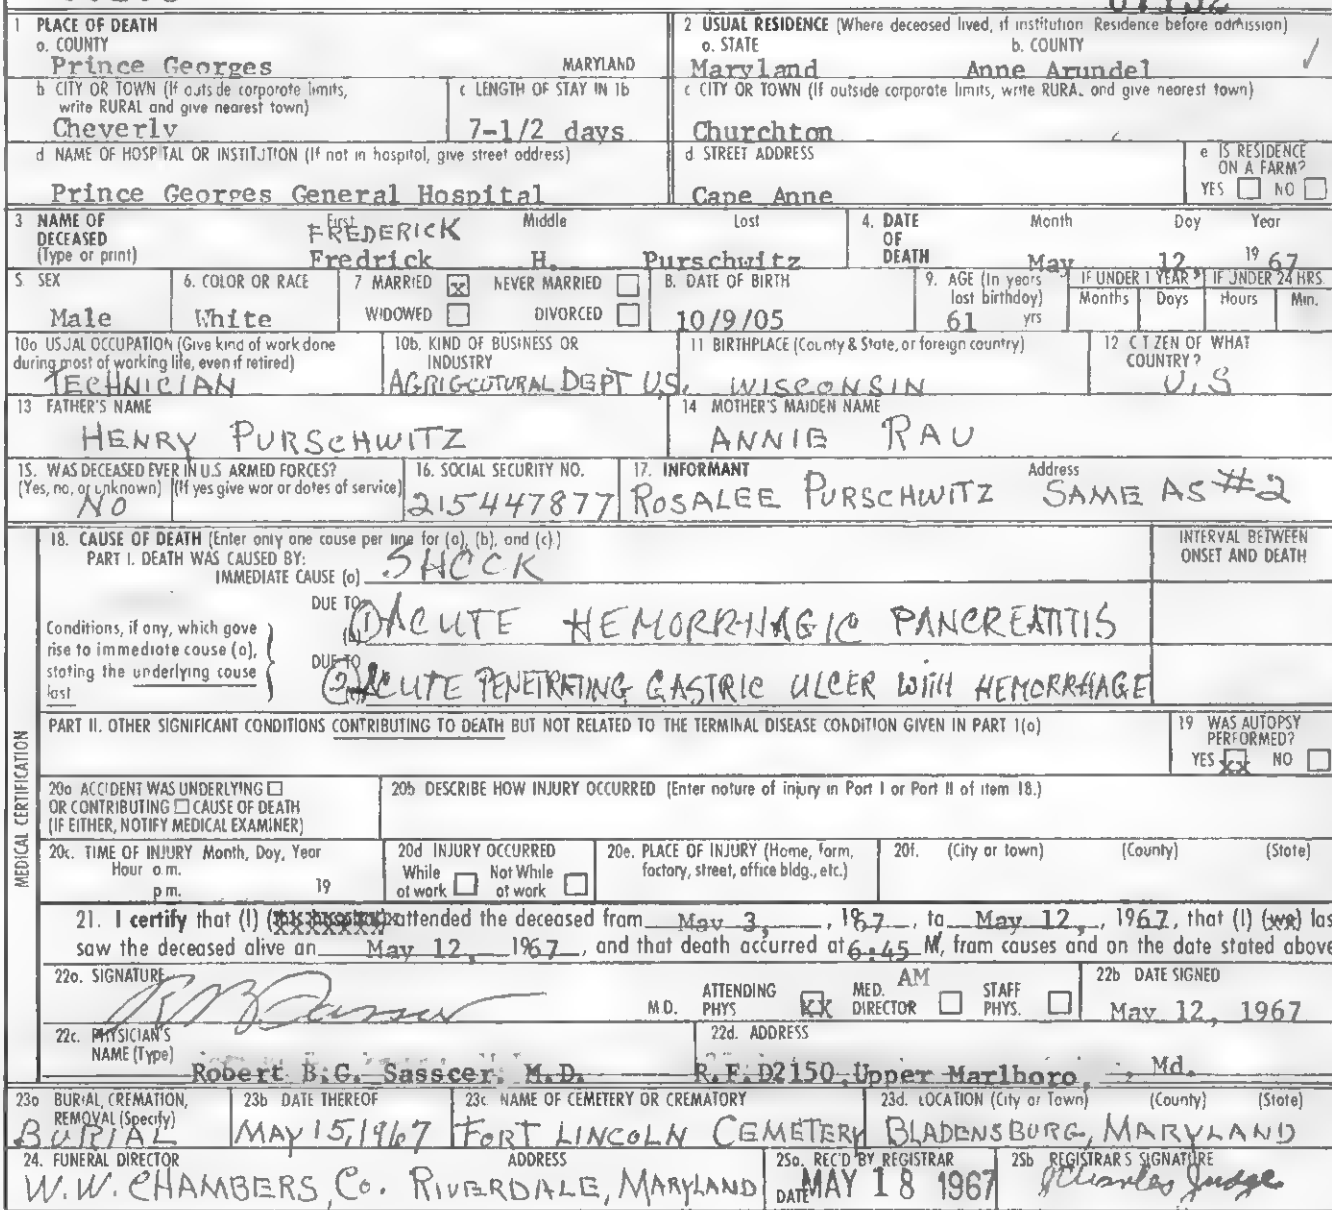 1 PLACE OF DEATH
a. COUNTY
Prince Georges MARYLAND
2 USUAL RESIDENCE (Where deceased lived, if institution Residence before admission)
a. STATE b. COUNTY
Maryland Anne Arundel
b CITY OR TOWN (If outside corporate limits, write RURAL and give nearest town)
Cheverly
c LENGTH OF STAY IN 1b
7-1/2 days
c CITY OR TOWN (If outside corporate limits, write RURAL and give nearest town)
Churchton
d NAME OF HOSPITAL OR INSTITUTION (If not in hospital, give street address)
Prince Georges General Hospital
d STREET ADDRESS
Cape Anne
e IS RESIDENCE ON A FARM?
YES NO
3 NAME OF DECEASED (Type or print)
First Middle Last
FREDERICK
Fredrick H. Purschwitz
4. DATE OF DEATH
Month Day Year
May 12, 1967
5. SEX
Male
6. COLOR OR RACE
White
7 MARRIED x NEVER MARRIED
WIDOWED DIVORCED
8. DATE OF BIRTH
10/9/05
9. AGE (In years last birthday)
61 yrs
IF UNDER 1 YEAR
Months Days
IF UNDER 24 HRS.
Hours Min.
10a USUAL OCCUPATION (Give kind of work done during most of working life, even if retired)
TECHNICIAN
10b. KIND OF BUSINESS OR INDUSTRY
AGRIGCUTURAL DEPT U.S.
11 BIRTHPLACE (County & State, or foreign country)
WISCONSIN
12 CITIZEN OF WHAT COUNTRY?
U.S
13 FATHER'S NAME
HENRY PURSCHWITZ
14 MOTHER'S MAIDEN NAME
ANNIE RAU
15. WAS DECEASED EVER IN U.S ARMED FORCES?
(Yes, no, or unknown) (If yes give war or dates of service)
NO
16. SOCIAL SECURITY NO.
215447877
17. INFORMANT Address
ROSALEE PURSCHWITZ SAME AS #2
MEDICAL CERTIFICATION
18. CAUSE OF DEATH (Enter only one cause per line for (a), (b), and (c).)
PART I. DEATH WAS CAUSED BY:
IMMEDIATE CAUSE (a) SHOCK
INTERVAL BETWEEN ONSET AND DEATH
Conditions, if any, which gave rise to immediate cause (a), stating the underlying cause last
DUE TO (b) (1) ACUTE HEMORRHAGIC PANCREATITIS
DUE TO (2) ACUTE PENETRATING GASTRIC ULCER WITH HEMORRHAGE
PART II. OTHER SIGNIFICANT CONDITIONS CONTRIBUTING TO DEATH BUT NOT RELATED TO THE TERMINAL DISEASE CONDITION GIVEN IN PART 1(a)
19 WAS AUTOPSY PERFORMED?
YES xx NO
20a ACCIDENT WAS UNDERLYING
OR CONTRIBUTING CAUSE OF DEATH
(IF EITHER, NOTIFY MEDICAL EXAMINER)
20b DESCRIBE HOW INJURY OCCURRED (Enter nature of injury in Part I or Part II of item 18.)
20c. TIME OF INJURY Month, Day, Year
Hour a.m.
p m. 19
20d INJURY OCCURRED
While at work Not While at work
20e. PLACE OF INJURY (Home, farm, factory, street, office bldg., etc.)
20f. (City or town) (County) (State)
21. I certify that (I) attended the deceased from May 3, 1967, to May 12, 1967, that (I) (we) las
saw the deceased alive on May 12, 1967, and that death occurred at 6:45 M, from causes and on the date stated above
AM
22a. SIGNATURE
M.D. ATTENDING PHYS XX MED. DIRECTOR STAFF PHYS.
22b DATE SIGNED
May 12, 1967
22c. PHYSICIAN'S NAME (Type)
Robert B.G. Sasscer, M.D.
22d. ADDRESS
R.F.D2150, Upper Marlboro, Md.
23a BURIAL, CREMATION, REMOVAL (Specify)
BURIAL
23b DATE THEREOF
MAY 15, 1967
23c NAME OF CEMETERY OR CREMATORY
FORT LINCOLN CEMETERY
23d. LOCATION (City or Town) (County) (State)
BLADENSBURG, MARYLAND
24. FUNERAL DIRECTOR ADDRESS
W.W. CHAMBERS, Co. RIVERDALE, MARYLAND
25a. REC'D BY REGISTRAR
DATE MAY 18 1967
25b REGISTRAR'S SIGNATURE
Charles Judge